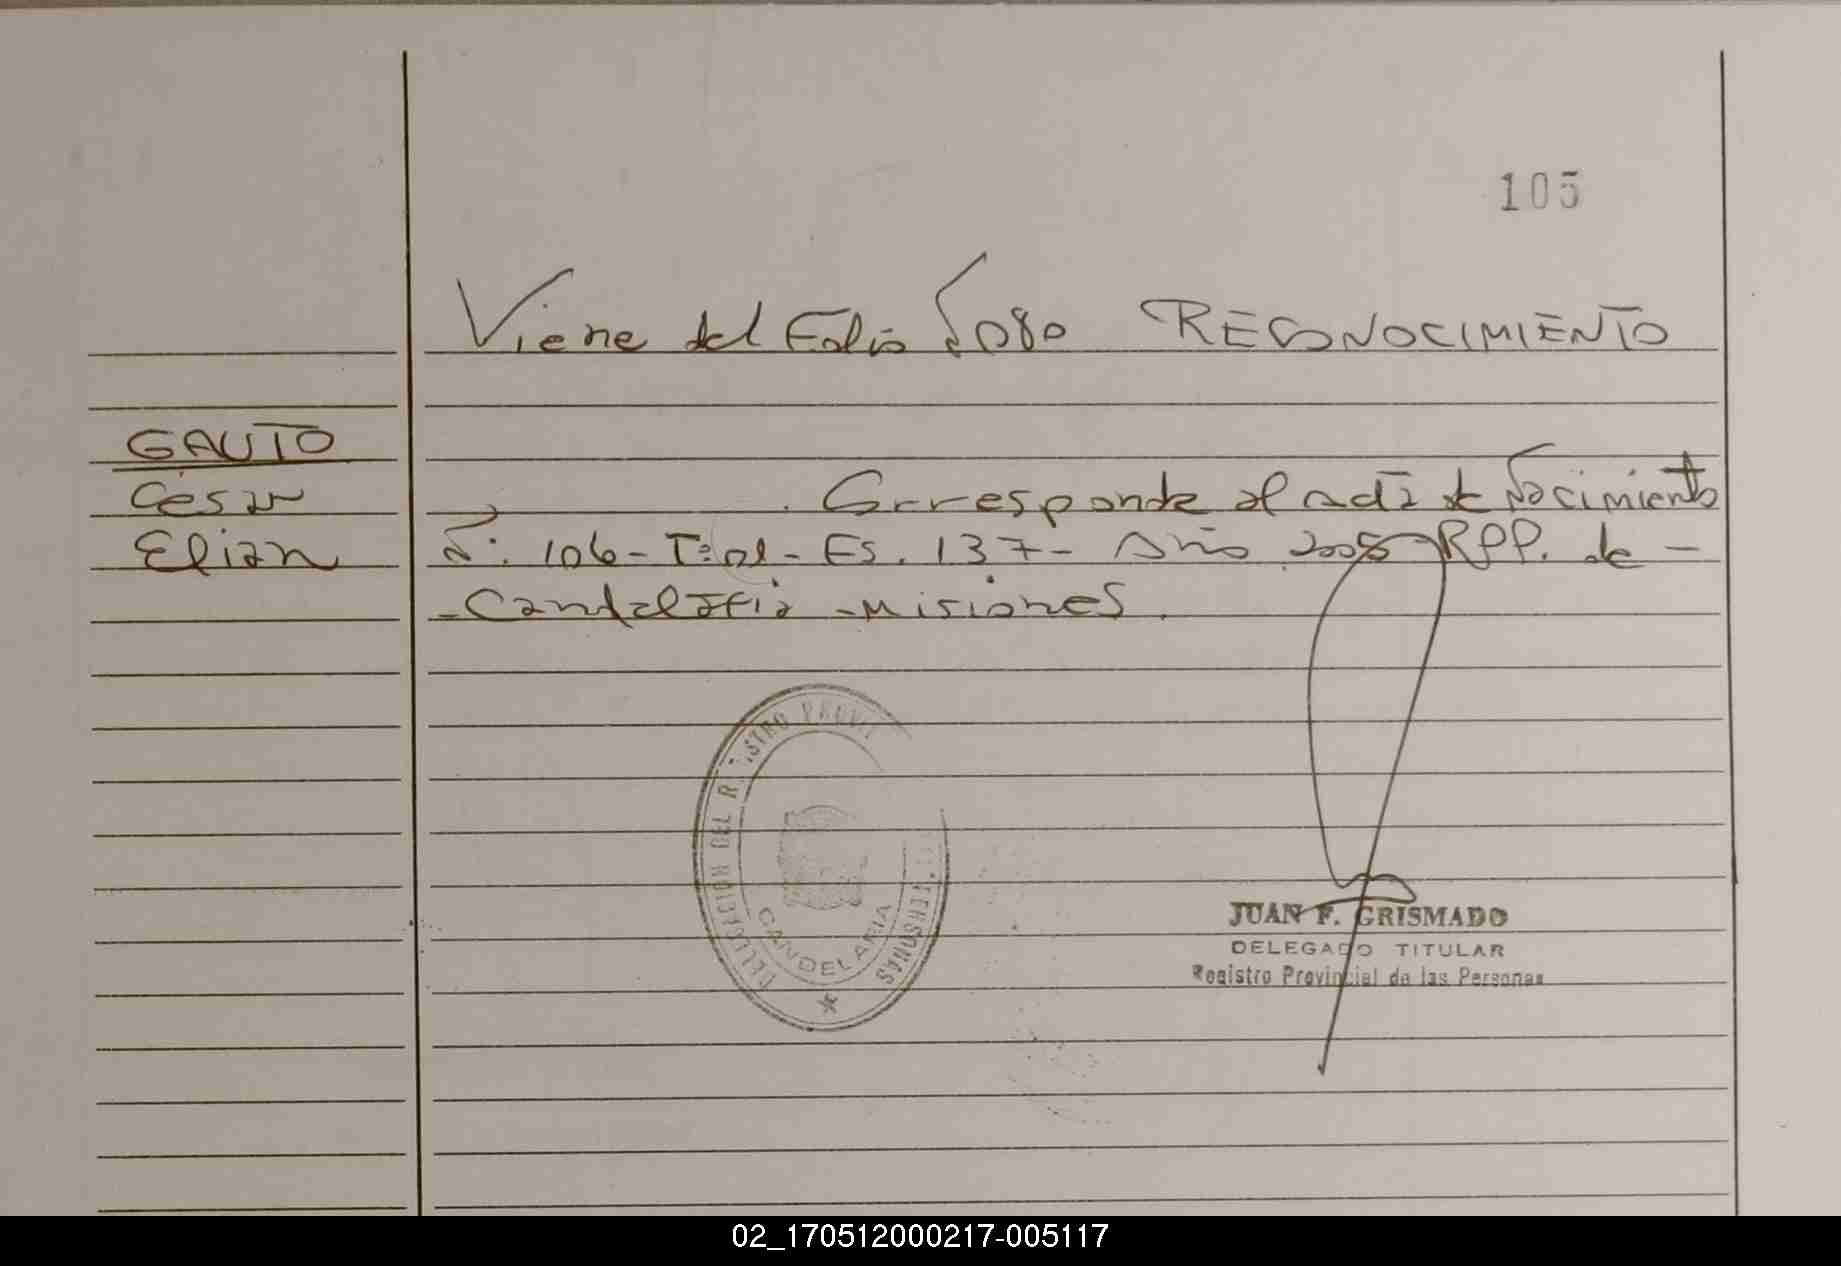 105
Viene del Folio Nº 080 RECONOCIMIENTO
GAUTO
César
Elian
Corresponde al acta de Nacimiento
Nº. 106- Tº: 01- Fs. 137- Año 2005 RPP. de -
- Candelaria - Misiones.
DELEGACION DEL REGISTRO PROVI
PERSONAS
CANDELARIA
JUAN F. GRISMADO
DELEGADO TITULAR
Registro Provincial de las Personas
02_170512000217-005117